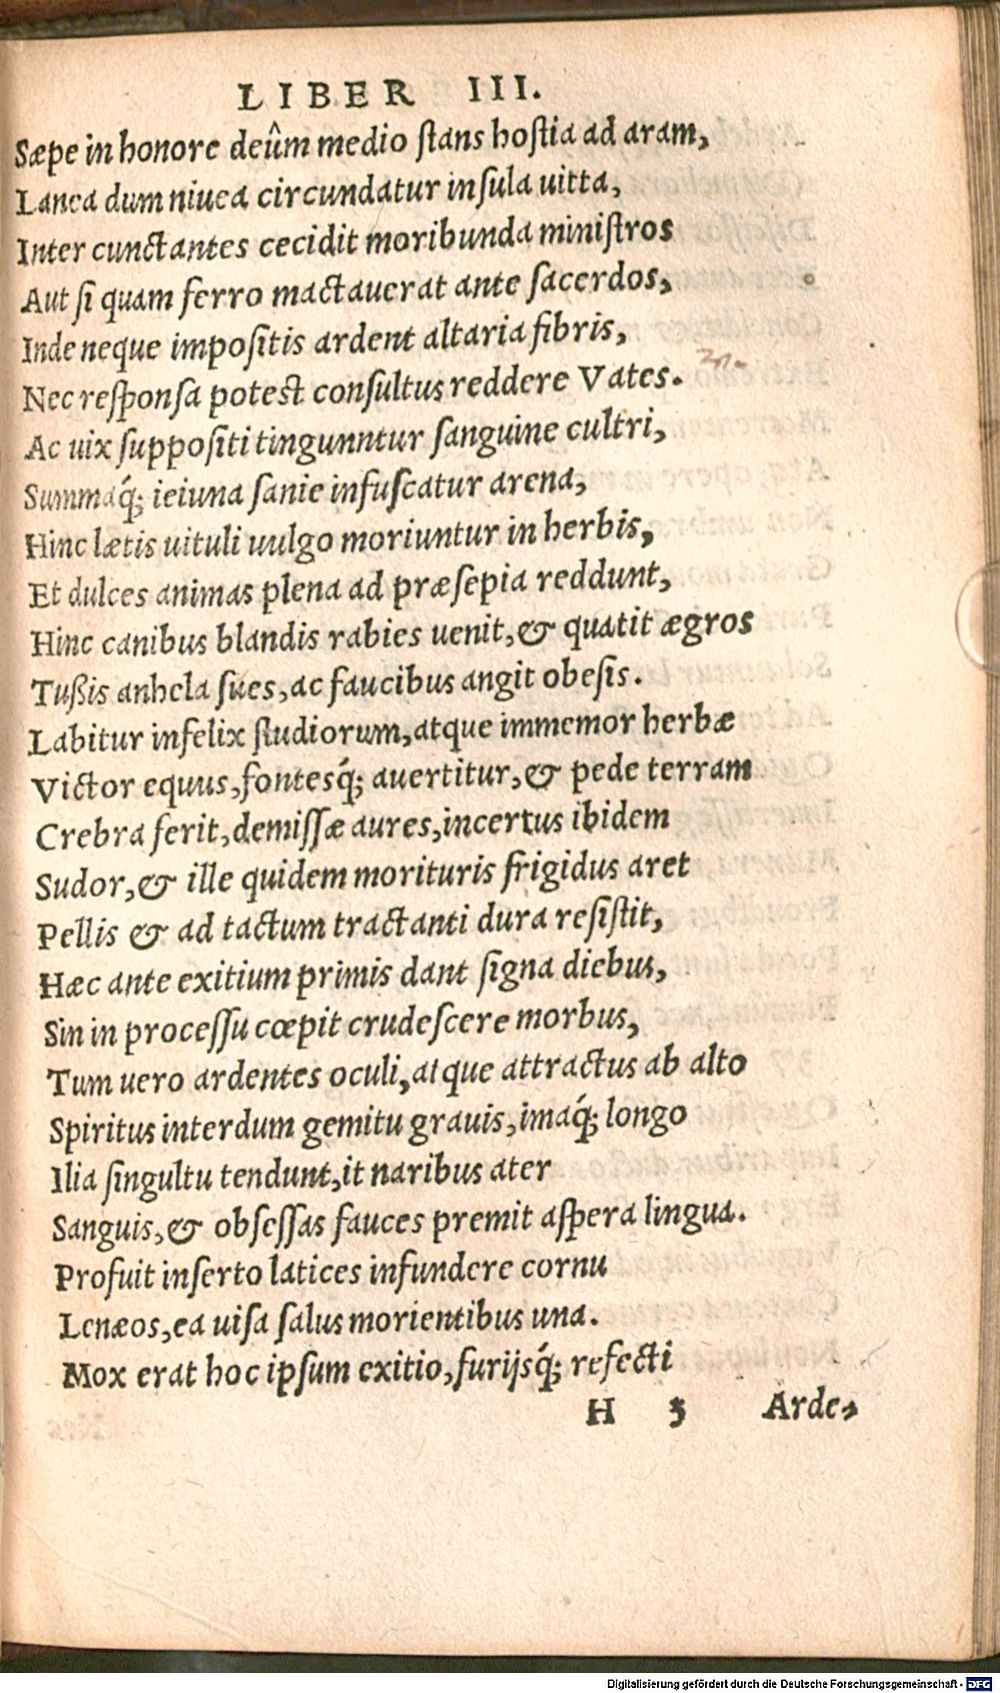 LIBER III.
Sæpe in honore deûm medio ſtans hoſtia ad aram,
Lanea dum niuea circundatur inſula uitta,
Inter cunctantes cecidit moribunda miniſtros
Aut ſi quam ferro mactauerat ante ſacerdos,
Inde neque impoſitis ardent altaria fibris,
Nec reſponſa poteſt conſultus reddere Vates.
Ac uix ſuppoſiti tingunntur ſanguine cultri,
Summaq́; ieiuna ſanie infuſcatur arena,
Hinc lætis uituli uulgo moriuntur in herbis,
Et dulces animas plena ad præſepia reddunt,
Hinc canibus blandis rabies uenit, & quatit ægros
Tußis anhela ſues, ac faucibus angit obeſis.
Labitur infelix ſtudiorum, atque immemor herbæ
Victor equus, fontesq́; auertitur, & pede terram
Crebra ferit, demiſſæ aures, incertus ibidem
Sudor, & ille quidem morituris frigidus aret
Pellis & ad tactum tractanti dura reſiſtit,
Hæc ante exitium primis dant ſigna diebus,
Sin in proceſſu cœpit crudeſcere morbus,
Tum uero ardentes oculi, atque attractus ab alto
Spiritus interdum gemitu grauis, imaq́; longo
Ilia ſingultu tendunt, it naribus ater
Sanguis, & obſeſſas fauces premit aſpera lingua.
Profuit inſerto latices infundere cornu
Lenæos, ea uiſa ſalus morientibus una.
Mox erat hoc ipſum exitio, furijsq́; refecti
H 3 Arde-
Digitalisierung gefördert durch die Deutsche Forschungsgemeinschaft - DFG